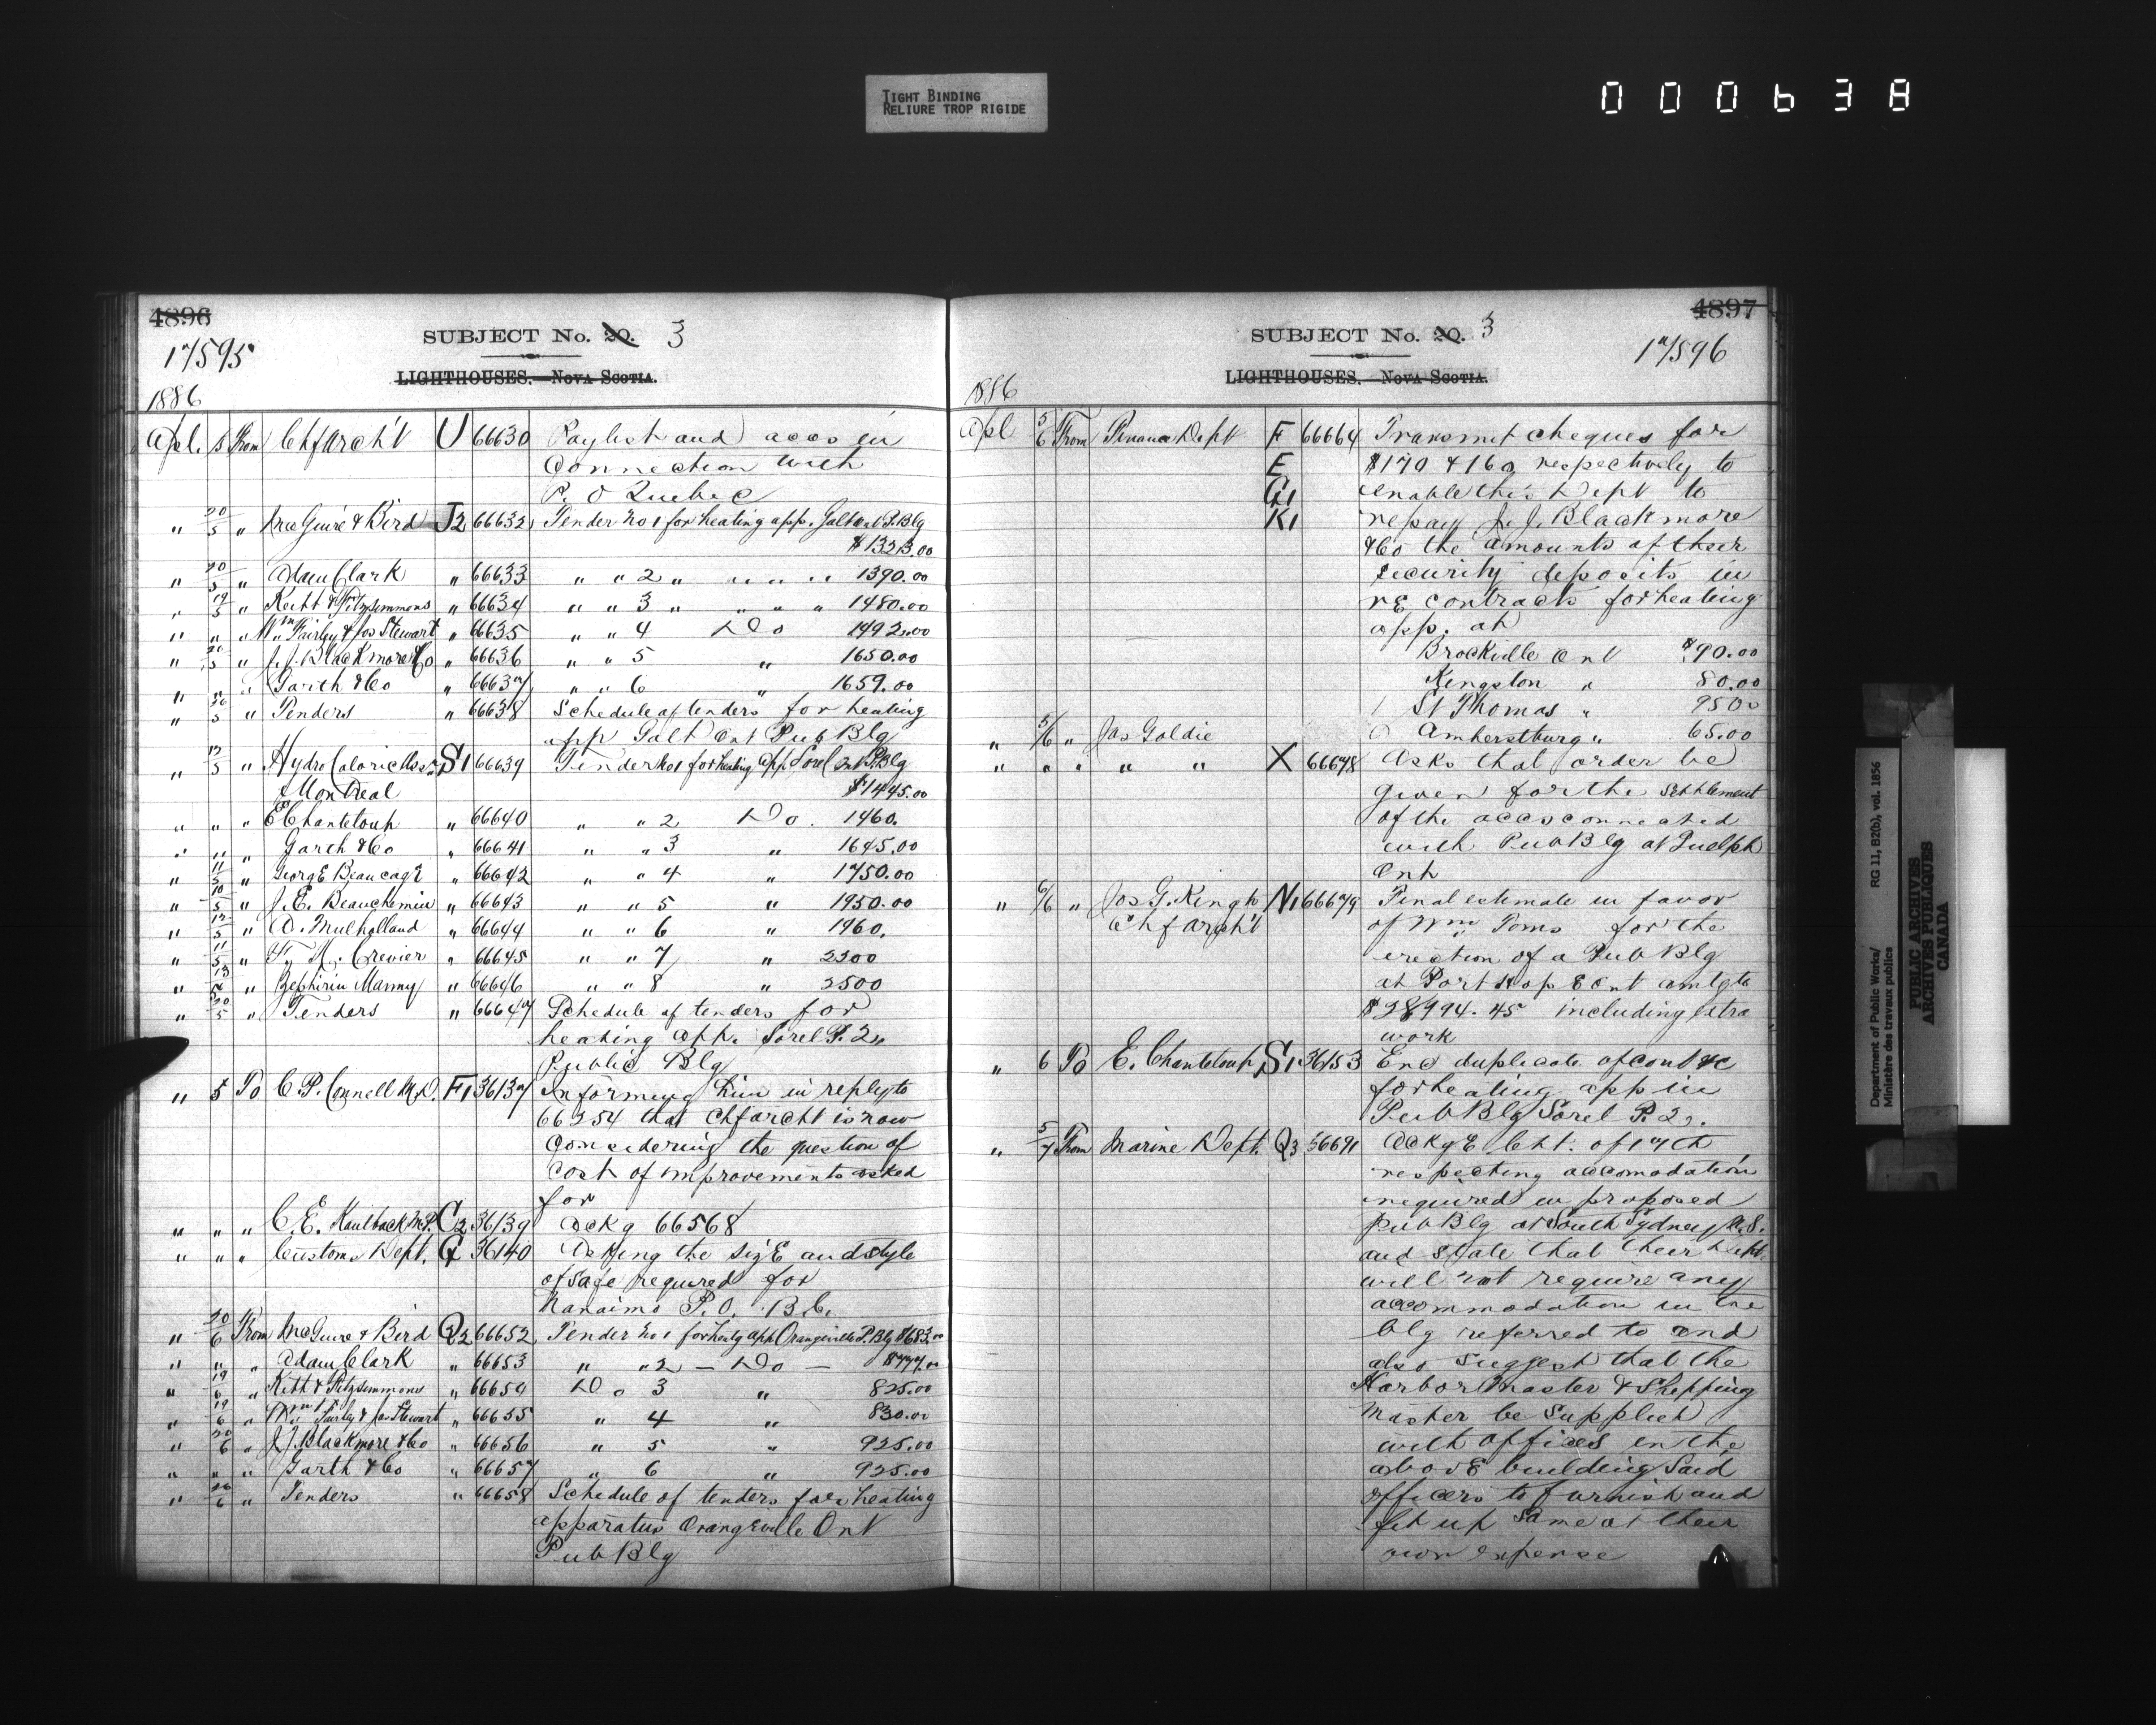 TIGHT BINDING
RELIURE TROP RIGIDE
000638
4896
SUBJECT No. 20. 3
17595
LIGHTHOUSES. NOVA SCOTIA.
1886
Apl. 5 From Chf Arch't U 66630 Paylist and accs in
connection with
P. O Quebec
" 20/5 " McGuire & Bird J2 66632 Tender No 1 for heating app. Galt Ont P. Blg
$1323.00
" 20/5 " Adam Clark " 66633 " " 2 " " " " 1390.00
" 19/5 " Keith & Fitzsimmons " 66634 " " 3 " " " " 1480.00
" " " Wm Fairley & Jos Stewart " 66635 " " 4 Do 1492.00
" 20/5 " J. J. Blackmore & Co " 66636 " " 5 " 1650.00
" " " Garth & Co " 66637 " " 6 " 1659.00
" 20/5 " Tenders " 66638 Schedule of tenders for heating
app Galt Ont Pub Blg
" 13/5 " Hydro Caloric S1 66639 Tender No 1 for heating app Sorel Ont P. Blg
Montreal $1445.00
" " " E Chanteloup " 66640 " " 2 Do. 1460.
" " " Garth & Co " 66641 " " 3 " 1645.00
" 11/5 " George Beaucage " 66642 " " 4 " 1750.00
" 10/5 " J. E. Beauchemin " 66643 " " 5 " 1950.00
" 12/5 " D. Mulholland " 66644 " " 6 " 1960.
" 11/5 " Crevier " 66645 " " 7 " 2300
" 13/5 " Zephirin Manny " 66646 " " 8 " 2500
" 20/5 " Tenders " 66647 Schedule of tenders for
heating app. Sorel P. 2.
Public Blg
" 5 To C. P. Connell M.D. F1 36137 Informing him in reply to
66254 that Chf archt is now
considering the question of
cost of improvements asked
for
" " " C. E. Kaulback M.P. C2 36139 Ackg 66568
" " " Customs Dept. G 36140 Asking the size and style
of safe required for
Nanaimo P. O. B. C.
" 20/6 From McGuire & Bird Q2 66652 Tender No 1 for heatg app Orangeville P. Blg $683.00
" " " Adam Clark " 66653 " " 2 — Do — $777.00
" 19/6 " Keith & Fitzsimmons " 66654 Do 3 " 825.00
" 19/6 " Wm Fairley & Jos Stewart " 66655 " 4 " 830.00
" 20/6 " J J Blackmore & Co " 66656 " 5 " 925.00
" " " Garth & Co " 66657 " 6 " 925.00
" 20/6 " Tenders " 66658 Schedule of tenders for heating
apparatus Orangeville Ont
Pub Blg
4897
SUBJECT No. 20. 3
17596
LIGHTHOUSES. NOVA SCOTIA.
1886
Apl 5/6 From Finance Dept F 66664 Transmit cheques for
E $170 & 160 respectively to
G1 enable this Dept to
K1 repay J. J. Blackmore
& Co the amounts of their
security deposits in
re contracts for heating
app. at
Brockville Ont $90.00
Kingston " 80.00
St Thomas " 95.00
" 5/6 " Jas Goldie Amherstburg " 65.00
" " " " " X 66678 Asks that order be
given for the settlement
of the accs connected
with Pub Blg at Guelph
Ont
" 6/6 " Jos G. King N1 66679 Final estimate in favor
Chf Archt of Wm Toms for the
erection of a Pub Blg
at Port Hope Ont amtg to
$28994.45 including extra
work
" 6 To E. Chanteloup S1 36153 Enc duplicate of contrc
for heating app in
Pub Blg Sorel P. 2.
" 5/7 From Marine Dept. Q3 66691 Ackge let. of 17th
respecting accomodation
required in proposed
Pub Blg at South Sydney N.S.
and state that their Dept
will not require any
accommodation in the
blg referred to and
also suggest that the
Harbor Master & Shipping
Master be supplied
with offices in the
above building Said
officers to furnish and
fit up same at their
own expense
Department of Public Works/
Ministère des travaux publics
RG 11, B2(b), vol. 1856
PUBLIC ARCHIVES
ARCHIVES PUBLIQUES
CANADA